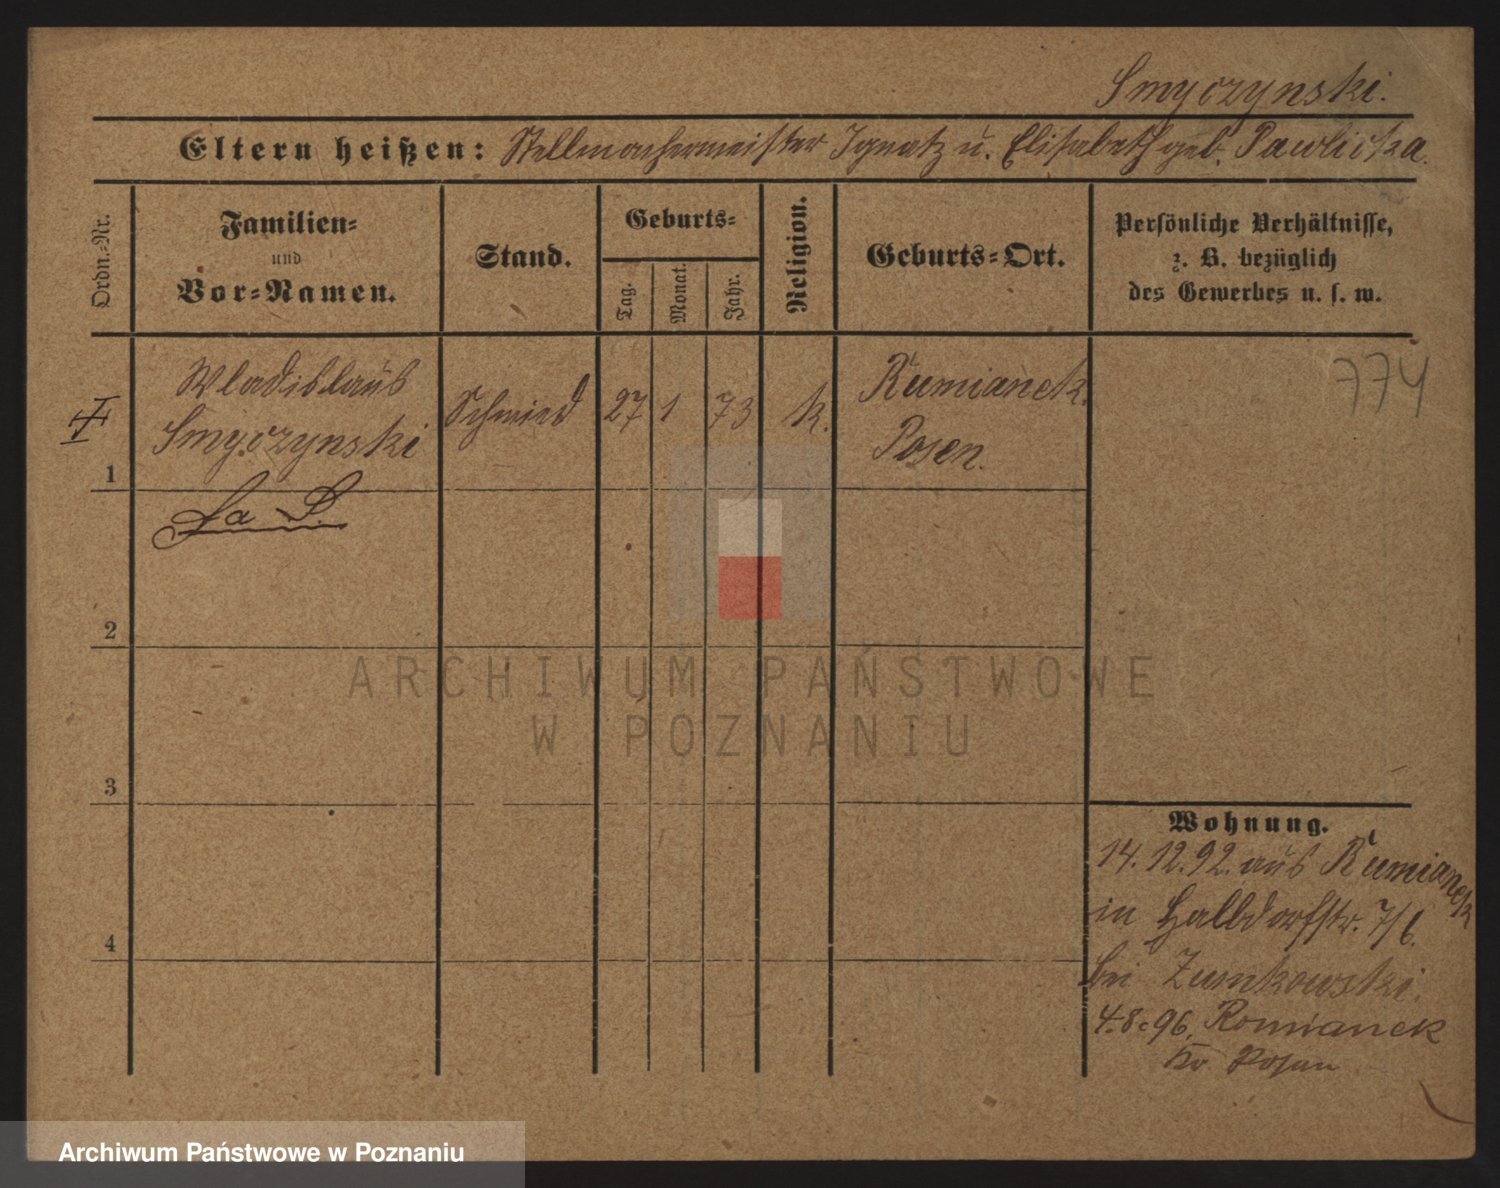 Smyczynski.
Eltern heißen: Stellmachermeister Ignatz u. Elisabeth geb. Pawlicka.
Ordn.-Nr.
Familien-
und
Vor-Namen.
Stand.
Geburts-
Tag.
Monat.
Jahr.
Religion.
Geburts-Ort.
Persönliche Verhältnisse,
z. B. bezüglich
des Gewerbes u. s. w.
Wladislaus
Smyczynski
Schmied
27
1
73
k.
Rumianek.
Posen.
774
1
2
3
4
Wohnung.
14. 12. 92. aus Rumianek
in Halbdorfstr. 7/6.
bei Zumkowski.
4.8.96. Romianek
Kr Posen
ARCHIWUM PAŃSTWOWE
W POZNANIU
Archiwum Państwowe w Poznaniu